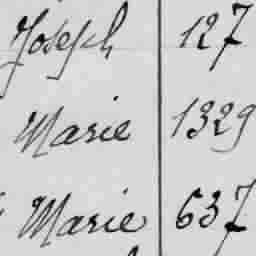 Joseph 127
Marie 1329
Marie 637